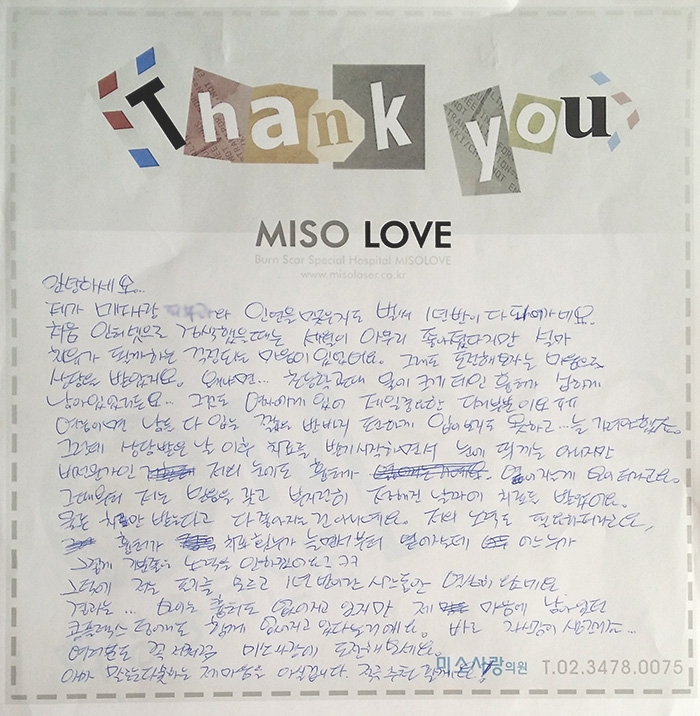 Thank you
MISO LOVE
Burn Scar Special Hospital MISOLOVE
www.misolaser.co.kr
안녕하세요...
제가 미소사랑 인연을 맺은지도 벌써 1년반이 다 되어가네요.
처음 인터넷으로 검색했을때는 세월이 아무리 좋아졌다지만 설마
치료가 될까하는 걱정되는 마음이 있었어요. 그래도 도전해보자는 마음으로
상담을 받았지요. 왜냐면... 초등학교때 불에 크게 데인 흉터가 심하게
남아있었거든요... 그것도 여자에게 있어 제일 중요한 다리부분이요 ㅠㅠ
여름이면 남들 다 입는 짧은 반바지 편하게 입어보지도 못하고... 늘
그런데 상담받은 날 이후 치료를 받기 시작하면서 눈에 띄게는 아니지만
비전문가인 저의 눈에도 흉터가 옅어지는게 보이더라고요.
그때부터 저는 믿음을 갖고 부지런히 정해진 날짜에 치료를 받았어요.
물론 치료만 받는다고 다 좋아지는건 아니네요. 저의 노력도 필요하더라고요,
흉터가 치료횟수가 늘면서부터 옅어지는데 어느누가
그렇게 기쁨을 노력을 안하겠어요? ㅋㅋ
그덕에 저는 포기를 모르고 1년 반이란 시간동안 열심히 다녔네요
결과는... 보이는 흉터도 없어지고 있지만 제 마음에 남아있던
콤플렉스 덩어리도 함께 없어지고 있다는거예요. 바로 자신감이 생긴거죠...
여러분도 꼭 미소사랑에 도전해보세요.
아마 말로는 다 못하는 제 마음을 아실겁니다. 적극 추천 할게요!
미소사랑의원 T.02.3478.0075